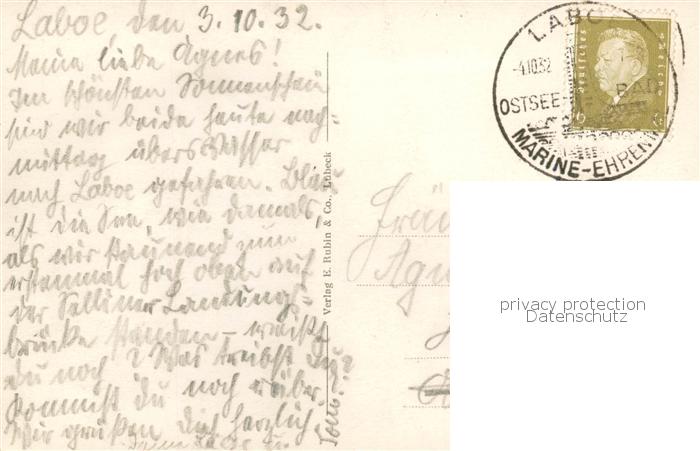 Laboe, den 3.10.32.
Meine liebe Agnes!
Im schönsten Sonnenschein
sind wir beide heute nach-
mittag übers Wasser
nach Laboe gefahren. Blau
ist die See, wie damals,
als wir staunend zum
erstenmal hoch oben auf
der Selliner Landungs-
brücke standen – weißt
du noch? Was treibst Du?
Kommst du noch rüber
Wir grüßen Dich herzlich
Toni
Verlag E. Rubin & Co., Lübeck
LABOE
-4.10.32
OSTSEEBAD
MARINE-EHREN
Deutsches Reich
6
Fräu
Agn
privacy protection
Datenschutz